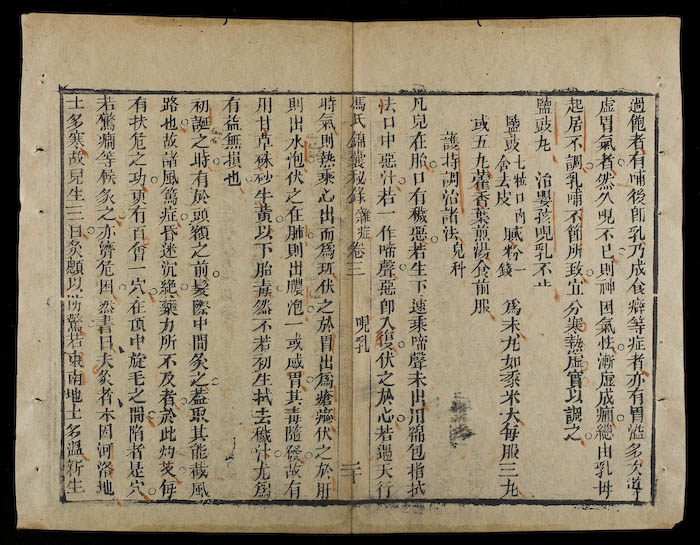 過飽者有哺後即乳乃成食癖等症者亦有胃溢多
虛胃氣者然久哯不已則神困氣性漸虛成癇總由乳母
起居不調乳哺不節所致宜分寒熱虛實以調之
鹽豉丸 治嬰孩哯乳不止
鹽豉七粒口內含去皮 膩粉一錢 爲末丸如黍米大每服三九
或五九藿香葉煎湯食前服
護持調治諸法 兒科
凡兒在胎口有穢惡若生下速乘啼聲未出用綿包指拭
法口中惡汁若一作啼聲惡即入腹伏之於心若遇天行
馮氏錦囊秘錄 雜症 卷三 哯乳 二十
時氣則熱乘心出而爲斑伏之於胃出爲瘡瘍伏之於肝
則出水泡伏之在肺則出膿泡一或感冒其毒隨發故有
用甘草硃砂牛黃以下胎毒然不若初生拭去穢汁尤爲
有益無損也
初誕之時有於頭額之前髮際中間灸之蓋取其能截風
路也故諸風篤症昏迷沉絕藥力所不及者於此灼艾每
有扶危之功更有百會一穴在頂中旋毛之間陷者是穴
若驚癇等候灸之亦濟危困然書曰夫灸者本因河洛地
土多寒故兒生三日灸顋以防驚若東南地土多溫新生